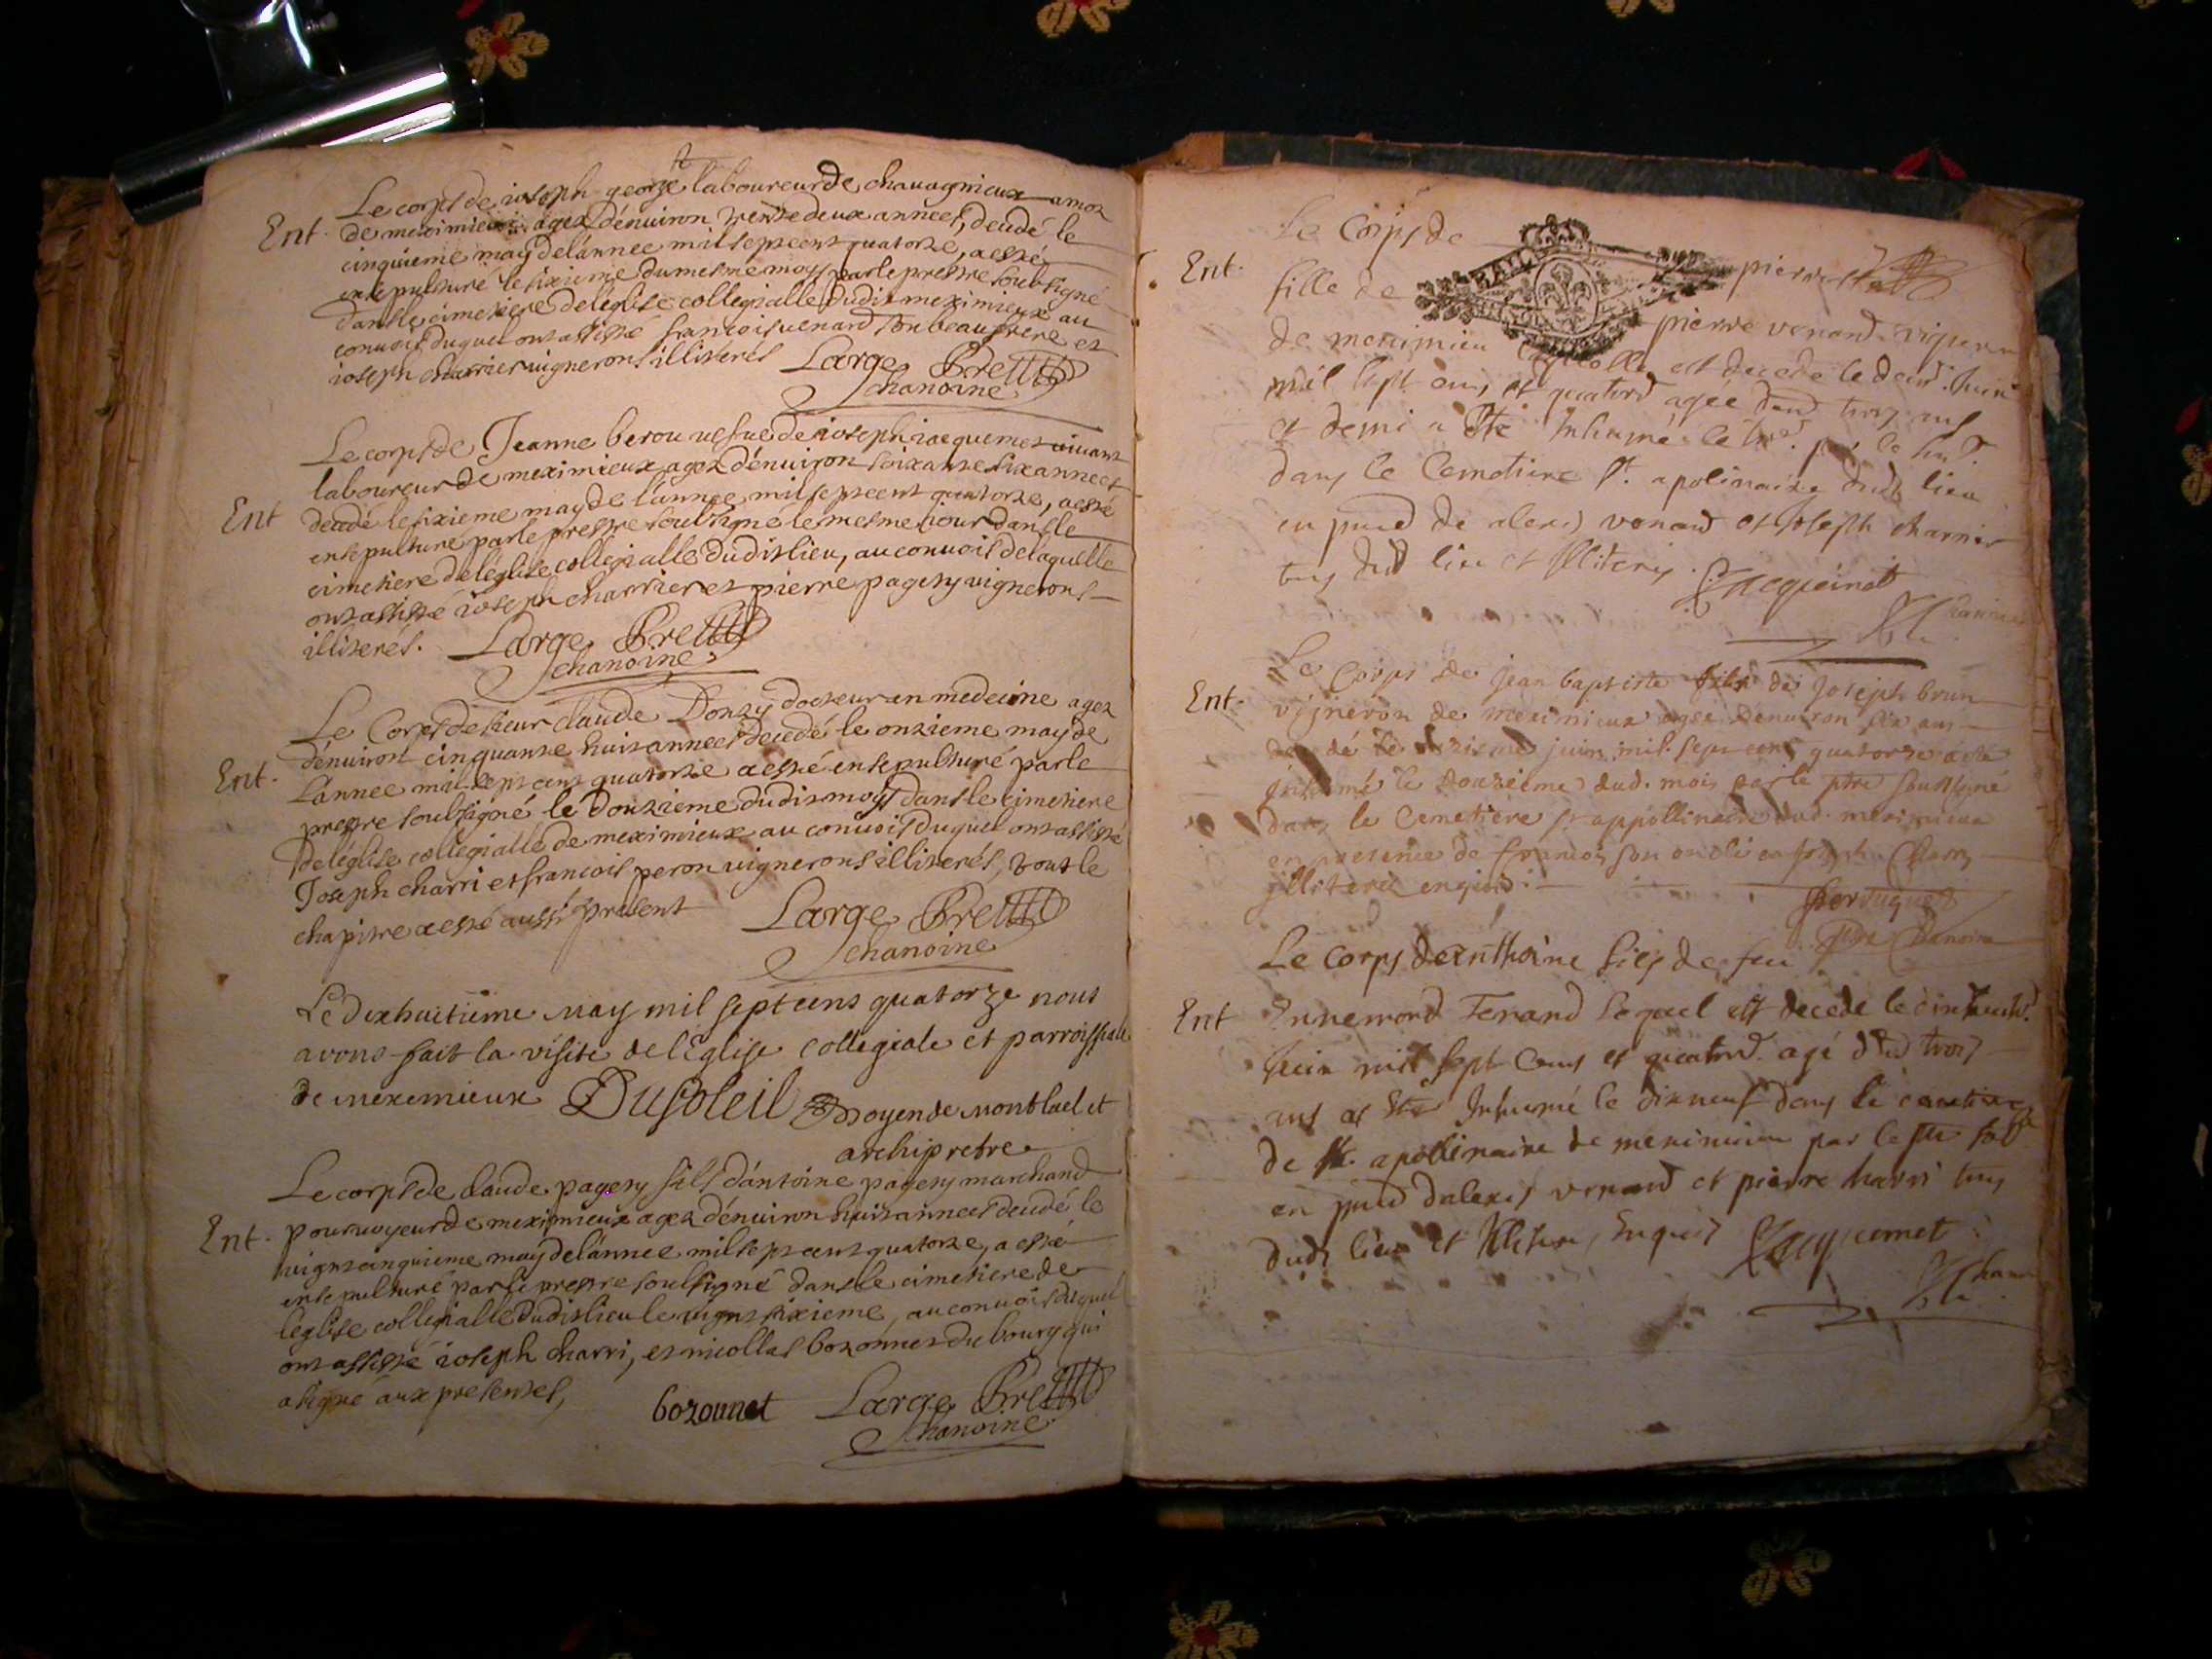 Le corps de ioseph george laboureur de chavagnieux amoz
Ent. de meximieux agez dénuiron trente deux annees, decedé le
cinquieme may de lánnee mil sept cent quatorze, a esté
ensepulturé le sixieme du mesme moys par le prestre soubsigné
dans le cimetiere de léglise collegialle dudit meximieux au
conuois duquel ont assisté francois uenard son beau frere et
ioseph charrier uignerons illiterés Large Bre
chanoine
Le corps de Jeanne berou uefue de ioseph iacquemet uiuant
laboureur de meximieux agez dénuiron soixante six annees
Ent decedé le sixieme may de lánnee mil sept cent quatorze, a esté
ensepulturé par le prestre soubsigné le mesme iour dans le
cimetiere de léglise collegialle dudit lieu, au conuois de laquelle
ont assisté ioseph charrier et pierre pagesy uignerons
illiterés. Large Bre
chanoine
Le Corps de sieur claude Donzy docteur en medecine agez
dénuiron cinquante huit annees decedé le onzieme may de
Ent. Lánnee mil sept cent quatorze a esté ensepulturé par le
prestre soubsigné le douzieme dudit moys dans le cimetiere
de léglise collegialle de meximieux au conuois duquel ont assisté
Joseph charri et francois peron uignerons illiterés, tout le
chapitre a esté aussi present Large Bre
chanoine
Le dixhuitieme may mil sept cens quatorze nous
avons fait la visite de lEglise collegiale et parroissiale
de meximieux Dusoleil Doyen de Montluel et
archipretre
Le corps de claude pagesy fils dántoine pagesy marchand
Ent. pouruoyeur de meximieux agez dénuiron huit annees decedé le
uignt cinquieme may de lánnee mil sept cent quatorze, a esté
ensepulturé par le prestre soubsigné dans le cimetiere de
léglise collegialle dudit lieu le uignt sixieme, au conuois duquel
ont assisté ioseph charri, et nicollas bozonnet du bourg qui
a signé aux presentes,
bozonnet Large Bre
chanoine
Le Corps de
Ent. fille de pierre
de meximieu pierre venand vigneron
est decede le juin
mil sept cens et quatord agée trois ans
et demi a été Inhumé le par le
dans le Cemetiere St. apolinaire dud lieu
en de alexis venand et joseph charrier
dud lieu et Illiteris. Jacquemet
Le Corps de jean baptiste fils de joseph brun
Ent. vigneron de meximieux agé denuiron six ans
decedé le onzieme juin mil sept cent quatorze a ete
inhumé le douzieme dud. mois par le ptre soussigné
dans le Cemetiere st appollinaire dud. meximieux
en presence de francois son oncle et joseph Charry
illiterez enquis
ptre Chanoine
Le Corps deAnthoine fils de feu
Ent Ennemond Ferrand lequel est decede le
juin mil sept Cens et quatord. agé trois
ans et été Inhumé le dixneuf dans le cemetiere
de St. apollinaire de meximieu par le ptre
en dalexis venand et pierre charri
dud lieu et Illiteres Enquis Jacquemet